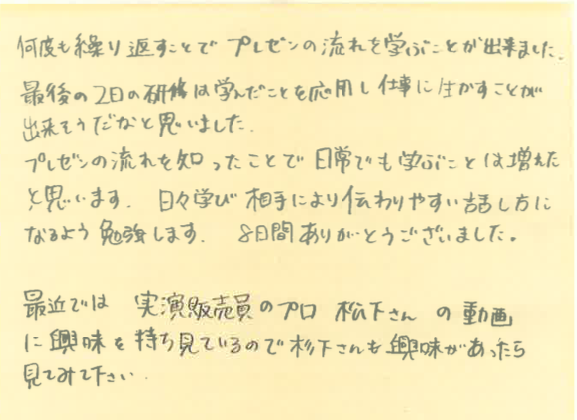 何度も繰り返すことでプレゼンの流れを学ぶことが出来ました。
最後の2日の研修は学んだことを応用し仕事に生かすことが
出来そうだなと思いました。
プレゼンの流れを知ったことで日常でも学ぶことは増えた
と思います。日々学び相手により伝わりやすい話し方に
なるよう勉強します。8日間ありがとうございました。
最近では 実演販売員のプロ 松下さん の動画
に興味を持ち見ているので杉下さんも興味があったら
見てみて下さい.